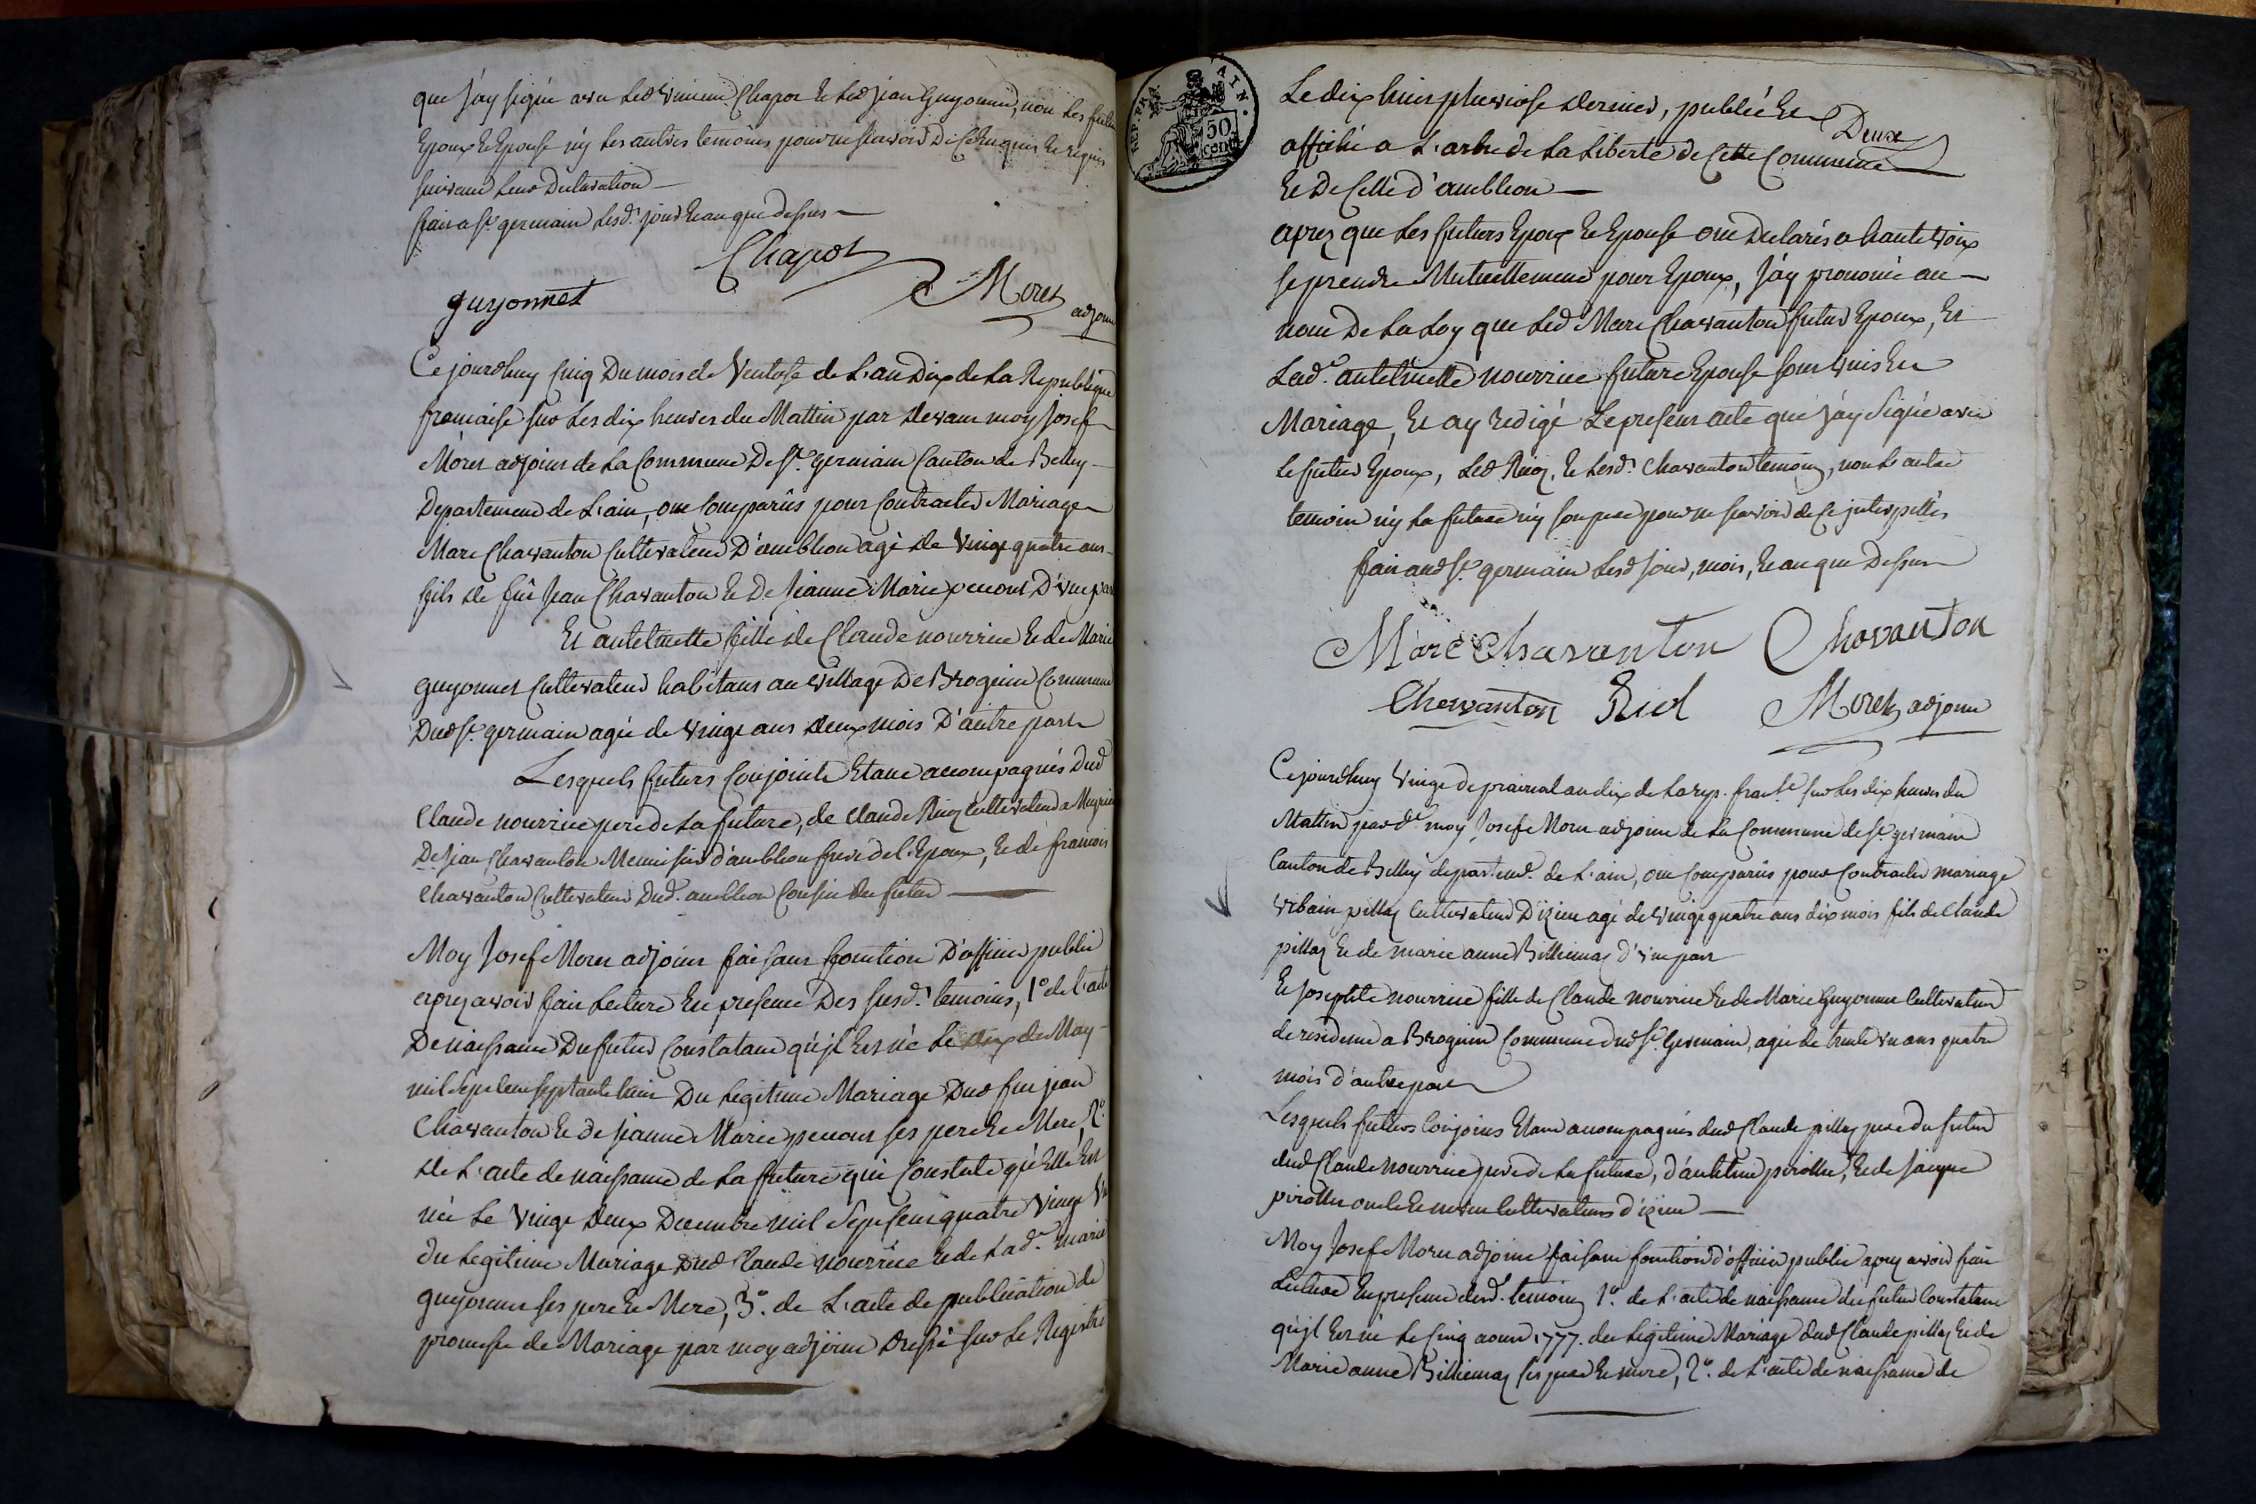 que j'ay signé avec led Vincent Chapot et led jean Guyonnet, non les futurs
Epoux et Epouse ny les autres temoins pour ne scavoir De Ce enquis et requis
suivant leur Declaration
fait a St germain lesd. jour et an que dessus
Chapot
guyonnet
Moret
adjoint
Ce jourdhuy Cinq Du mois de Ventose de L'an Dix de La Republique
francaise sur Les dix heures du Mattin par devant moy Josef
Moret adjoint de La Commune De St. germain Canton de Belley
Departement de L'ain, ont Comparus pour Contracter Mariage
Marc Chavanton Cultivateur D'ambleon agé de vingt quatre ans
fils de fût Jean Chavanton et De Jeanne Marie D'une part
Et antelmette fille de Claude nourrice et de Marie
guyonnet Cultivateur habitans au village De Brognin Commune
Dud St. germain agée de vingt ans deux mois D'autre part
Lesquels futurs Conjoints Etant accompagnés Dud
Claude nourrice pere de La future, de Claude Cultivateur a
De Jean Chavanton Menuisier d'ambleon frere de l'Epoux, et de francois
Chavanton Cultivateur Dud. ambleon Cousin du futur
Moy Josef Moret adjoint faisant fonction D'officier public
aprez avoir fait Lecture En présence Des susd. temoins, 1° de l'acte
De naissance Du futur Constatant qu'jl Est né le de May
mil sept cent septante huit Du Legitime Mariage Dud feu jean
Chavanton et de jeanne Marie ses pere et Mere, 2°.
de L'acte de naissance de La future qui Constate qu'Elle Est
née Le vingt Deux Decembre mil sept cent quatre vingt un
du Legitime Mariage Dud Claude nourrice et de Lad. marie
guyonnet ses pere et Mere, 3°. de L'acte de publication de
promesse de Mariage par moy adjoint Dressé sur Le Registre
REP. FRA. AIN.
50
cent.
Le dix huit pluviose dernier, publié et
Deux
affiché a L'arbre de La Liberté de Cette Commune
et De Celle d'ambleon
aprez que Les futurs Epoux et Epouse ont Declarés a haute voix
se prendre Mutuellement pour Epoux, J'ay prononcé au
nom De La Loy que Led. Marc Chavanton futur Epoux, Et
Lad. antelmette nourrice future Epouse sont unis En
Mariage, et ay redigé Le present acte que j'ay signé avec
le futur Epoux, Led et Lesd. Chavanton temoins, non L'autre
temoin ny La future ny son pere pour ne scavoir de Ce interpellés
fait aud St. germain Lesd jour, mois, et an que Dessus
Marc Chavanton Chavanton
Chavanton Moret adjoint
Ce jourdhuy vingt de prairial an dix de La rep. franse. sur Les dix heures du
Mattin par dt. moy Josef Moret adjoint de La Commune de St. germain
Canton de Belley departemt. de L'ain, ont Comparus pour Contracter mariage
urbain Cultivateur D'izieu agé de vingt quatre ans dix mois fils de Claude
et de marie anne D'une part
Et josephte nourrice fille de Claude nourrice et de Marie Guyonnet Cultivateur
de residence a Brognin Commune dud St. Germain, agée de trente un ans quatre
mois d'autre part
Lesquels futurs Conjoints Etant accompagnés dud Claude pere du futur
dud Claude nourrice pere de La future, d'antelme et de Jacque
oncle et neveu Cultivateurs d'izieu
Moy Josef Moret adjoint faisant fonction d'officier public aprez avoir fait
Lecture En presence desd. temoins 1°. de L'acte de naissance du futur Constatant
qu'jl Est né Le Cinq aout 1777. du Legitime Mariage dud Claude et de
Marie anne ses pere et mere, 2°. de L'acte de naissance de